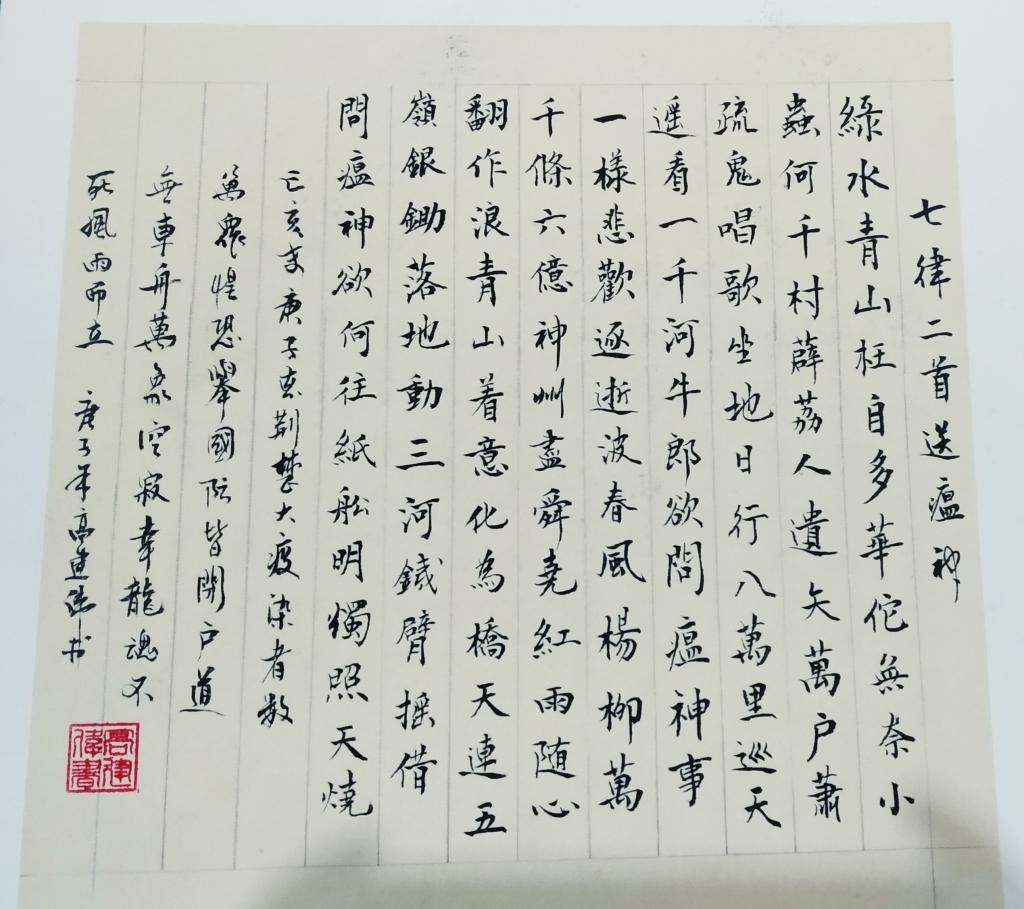 七律二首送瘟神
綠水青山枉自多華佗無奈小
蟲何千村薜荔人遺矢萬户蕭
疏鬼唱歌坐地日行八萬里巡天
遥看一千河牛郎欲問瘟神事
一樣悲歡逐逝波春風楊柳萬
千條六億神州盡舜堯紅雨随心
翻作浪青山着意化為橋天連五
嶺銀鋤落地動三河鐵臂摇借
問瘟神欲何往紙船明燭照天燒
己亥末庚子春荆楚大疫染者数
萬衆惶恐舉國防皆閉户道
無車舟萬象空寂幸龍魂不
死風雨而立
庚子年高建偉书
高建偉書